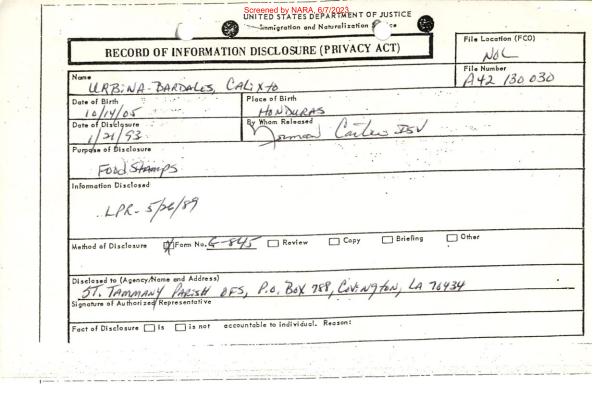 Screened by NARA, 6/7/2023
UNITED STATES DEPARTMENT OF JUSTICE
Immigration and Naturalization
RECORD OF INFORMATION DISCLOSURE (PRIVACY ACT)
File Location (FCO)
NOL
Name
URBINA-BARDALES, CALIXTO
File Number
A42 130 030
Date of Birth
10/14/05
Place of Birth
HONDURAS
Date of Disclosure
1/21/93
By Whom Released
Norman
Purpose of Disclosure
FOOD STAMPS
Information Disclosed
LPR - 5/26/89
Method of Disclosure Form No. G-845 Review Copy Briefing Other
Disclosed to (Agency/Name and Address)
ST. TAMMANY PARISH OFS, P.O. BOX 788, COVINGTON, LA 70434
Signature of Authorized Representative
Fact of Disclosure is is not accountable to individual. Reason: